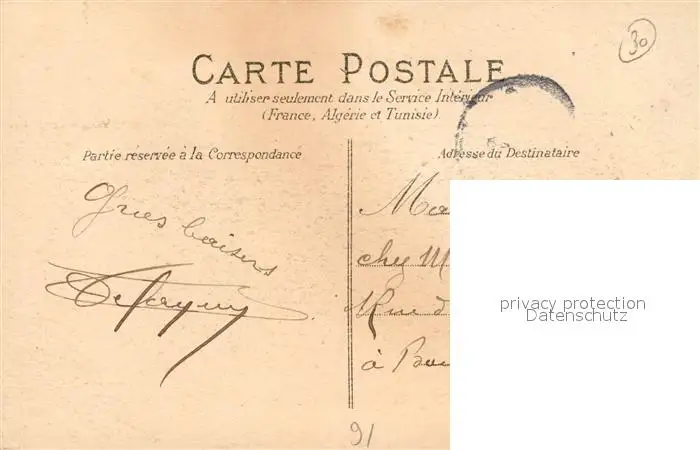 30
CARTE POSTALE
A utiliser seulement dans le Service Intérieur
(France, Algérie et Tunisie)
Partie réservée à la Correspondance
Adresse du Destinataire
baisers
chez M
Rue d
à
privacy protection
Datenschutz
91